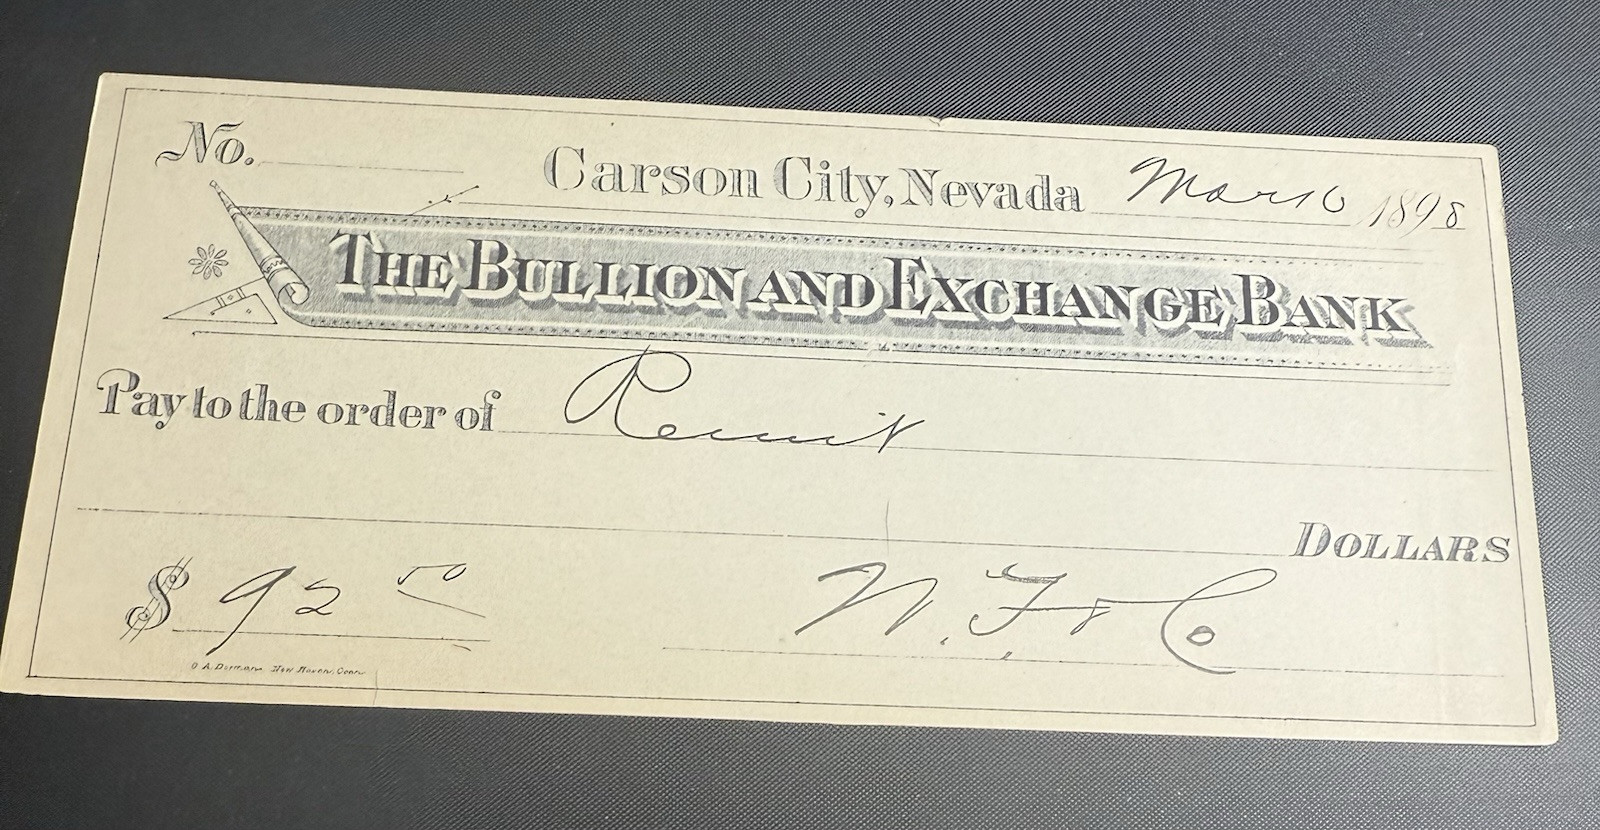 No. Carson City, Nevada Mar 10 1898
THE BULLION AND EXCHANGE BANK
Pay to the order of Remit
DOLLARS
$ 92 50 W. F & Co
O. A. Dorman New Haven, Conn